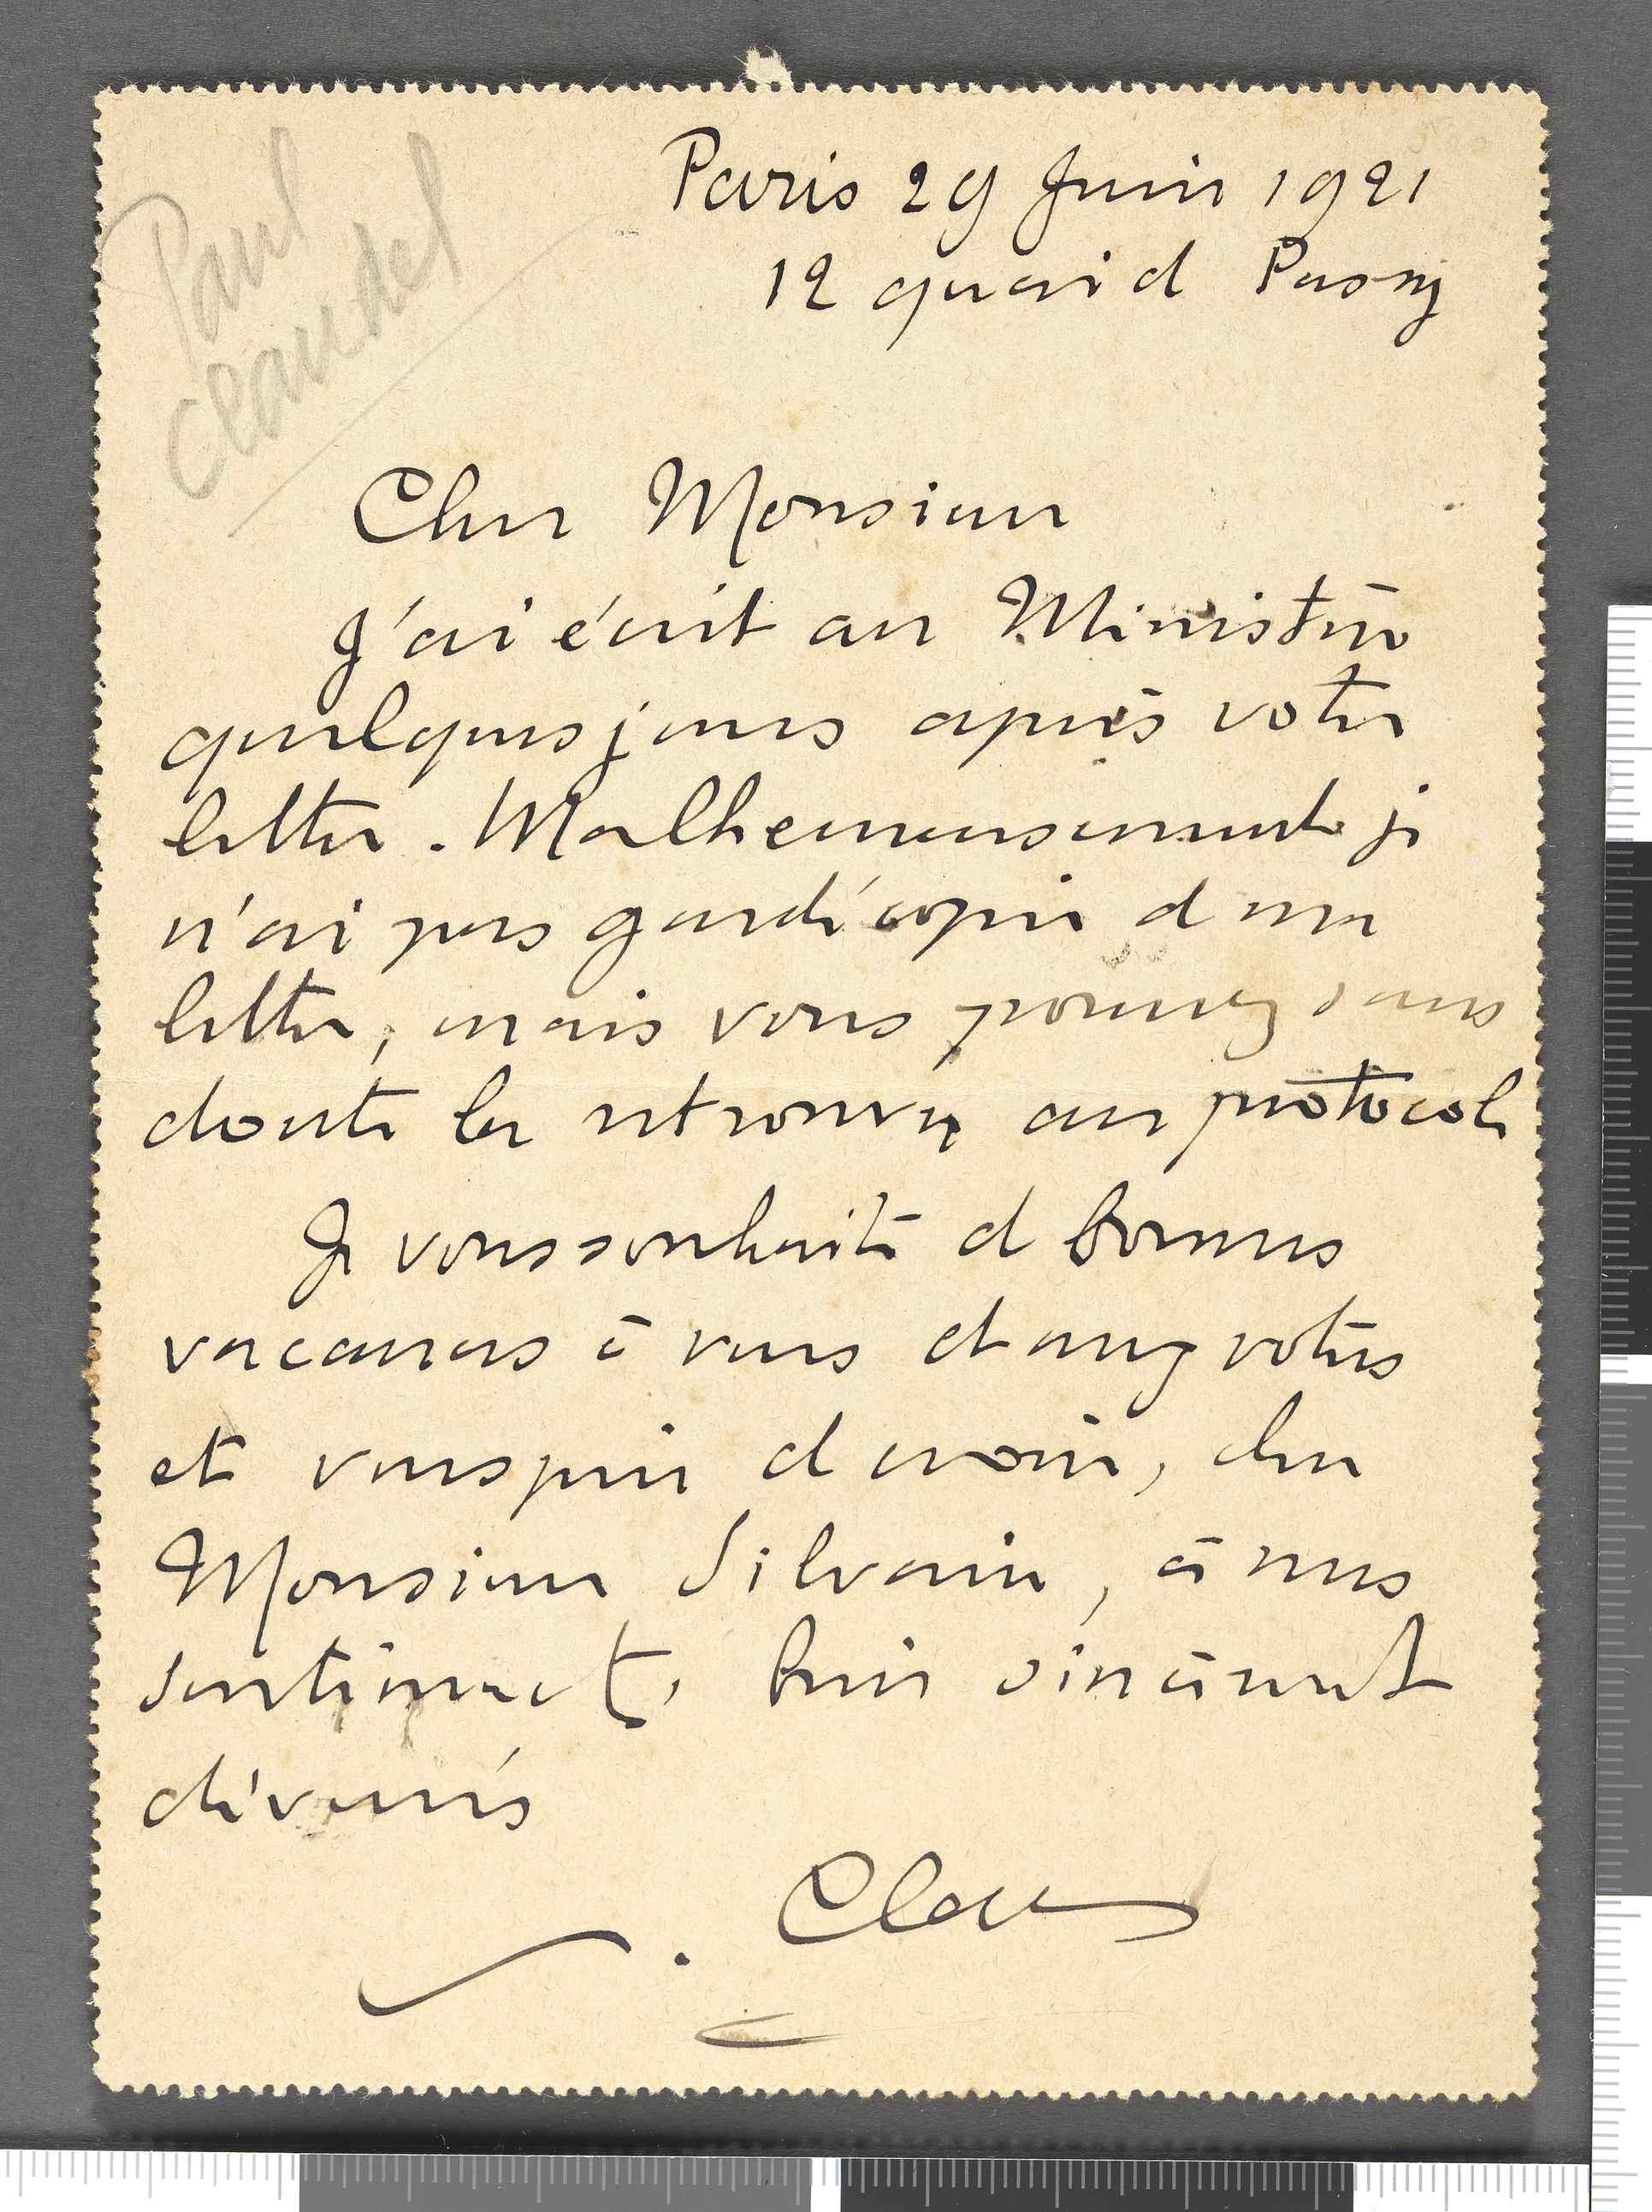 Paul
Claudel
Paris 29 Juin 1921
12 quai d Passy
Cher Monsieur
J'ai écrit au Ministère
quelques jours après votre
lettre. Malheureusement je
n'ai pas gardé copie de ma
lettre, mais vous pourrez sans
doute la retrouver au protocole
Je vous souhaite de bonnes
vacances à vous et aux vôtres
et vous prie de croire, cher
Monsieur Silvain, à mes
sentiments bien sincèrement
dévoués